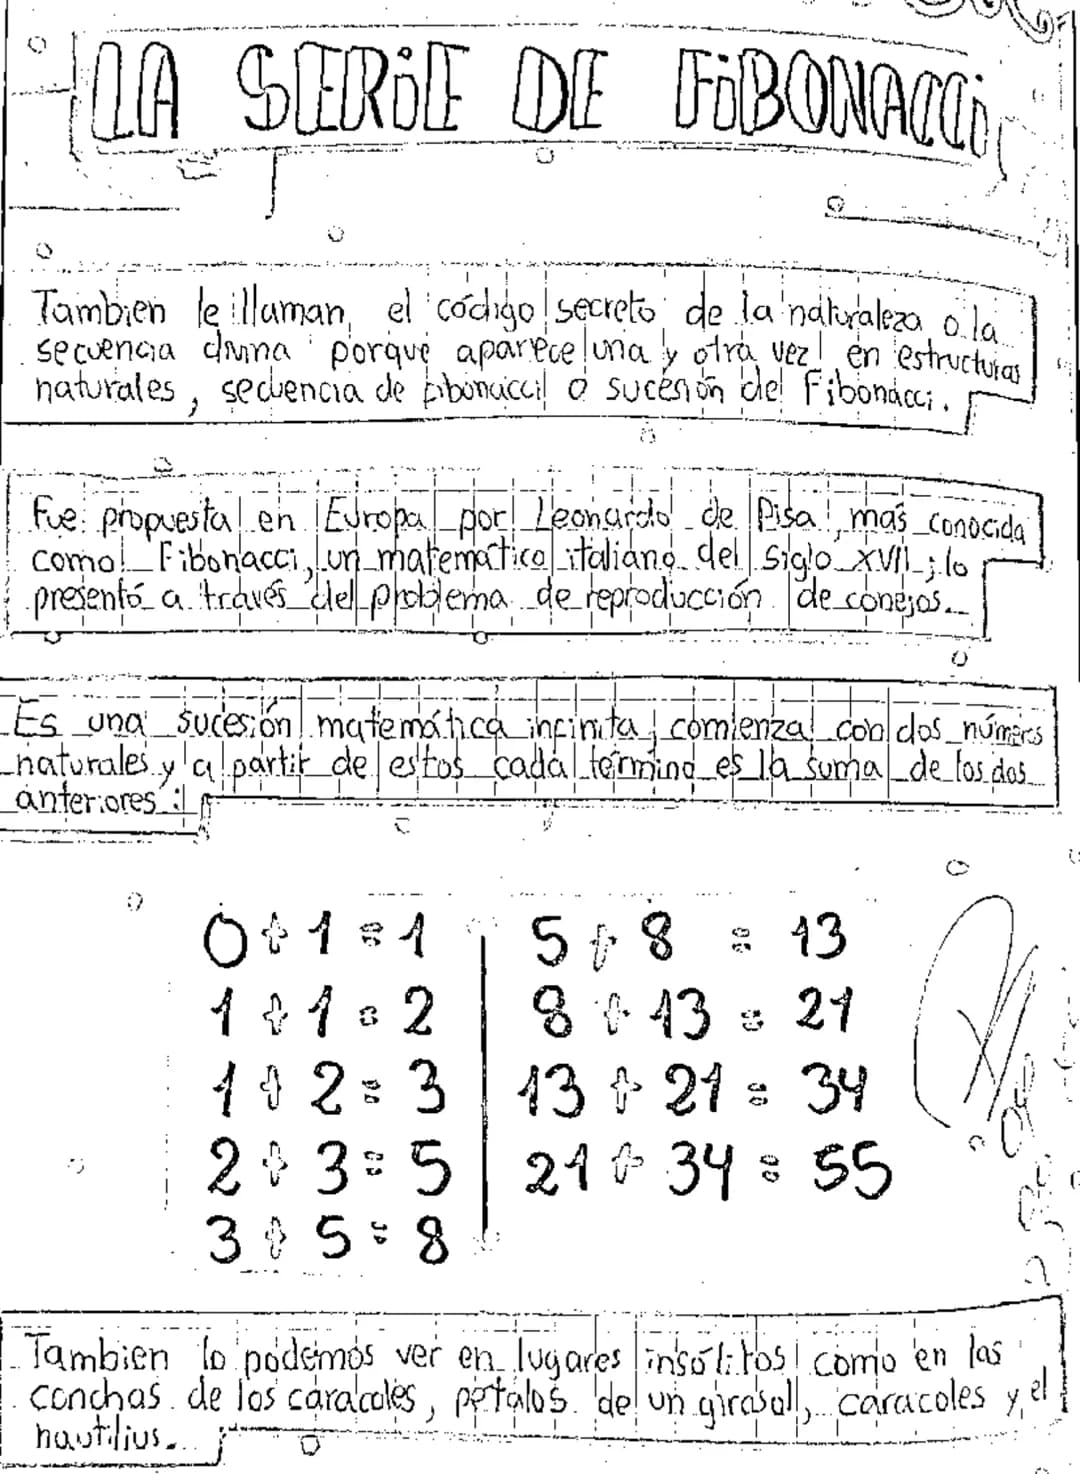 LA SERiE DE FiBONACCi
Tambien le illaman, el código secreto de la naturaleza o la
secuencia divina porque aparece una y otra vez en estructuras
naturales, secuencia de Fibonacci o sucesión de Fibonacci.
Fue propuesta en Europa por Leonardo de Pisa, más conocida
como Fibonacci, un matemático italiano del siglo XVII; lo
presentó a través del problema de reproducción de conejos.
Es una sucesión matemática infinita, comienza con dos números
naturales y a partir de estos cada término es la suma de los dos
anteriores:
0 + 1 = 1
1 + 1 = 2
1 + 2 = 3
2 + 3 = 5
3 + 5 = 8
5 + 8 = 13
8 + 13 = 21
13 + 21 = 34
21 + 34 = 55
Tambien lo podemos ver en lugares insólitos como en las
conchas de los caracoles, pétalos de un girasol, caracoles y el
nautilius.